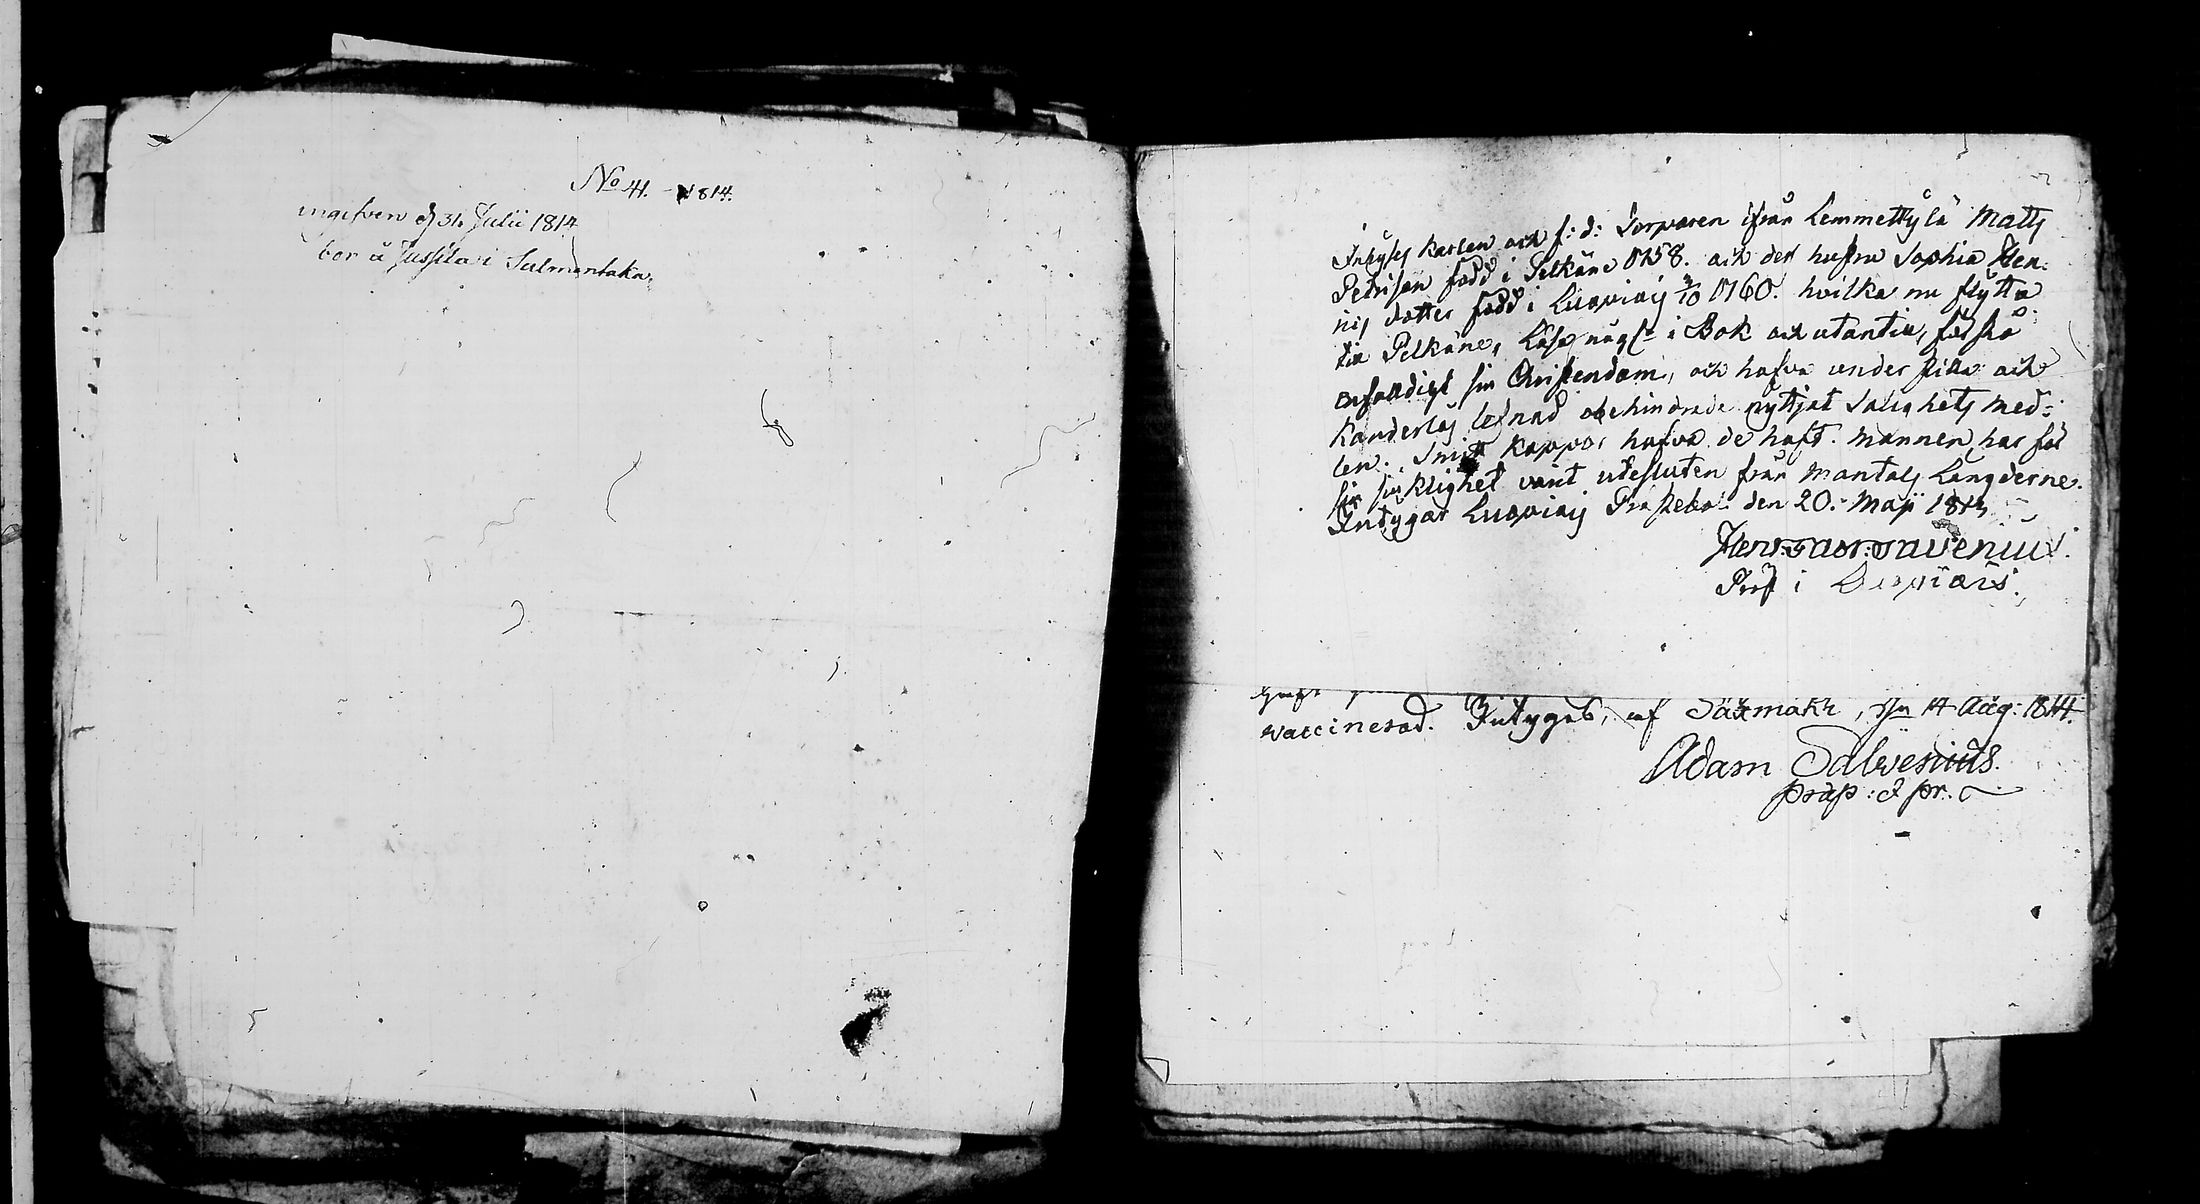 No 41. 1814.
ingifven d 31 Julii 1814
bor å Jussila i Salmentaka.
Inhyses Karlen och f: d: Torparen ifrån Lemmettylä Matts
Petrison född i Pelkäne 1758. och des hustru Sophia Hen-
rics dotter född i Luopiois 2/10 1760. hvilka nu flytta
till Pelkäne, Läsa någl. i Bok och utantill, förstå
enfaldigt sin Christendom, och hafva under stilla och
klanderlös lefnad obehindrade nyttjat Salighets med-
len. Smitt Koppor hafva de haft. Mannen har för
sin sjuklighet varit utesluten från Mantals Längderne.
Intygar Luopiois Prästebol den 20. Maji 1814
Henr: Favenius.
i Luopiois.
vaccinerad. Intygas, af Säxmäki, d 14 Aug: 1814.
Adam Salvenius.
prap: & pr.